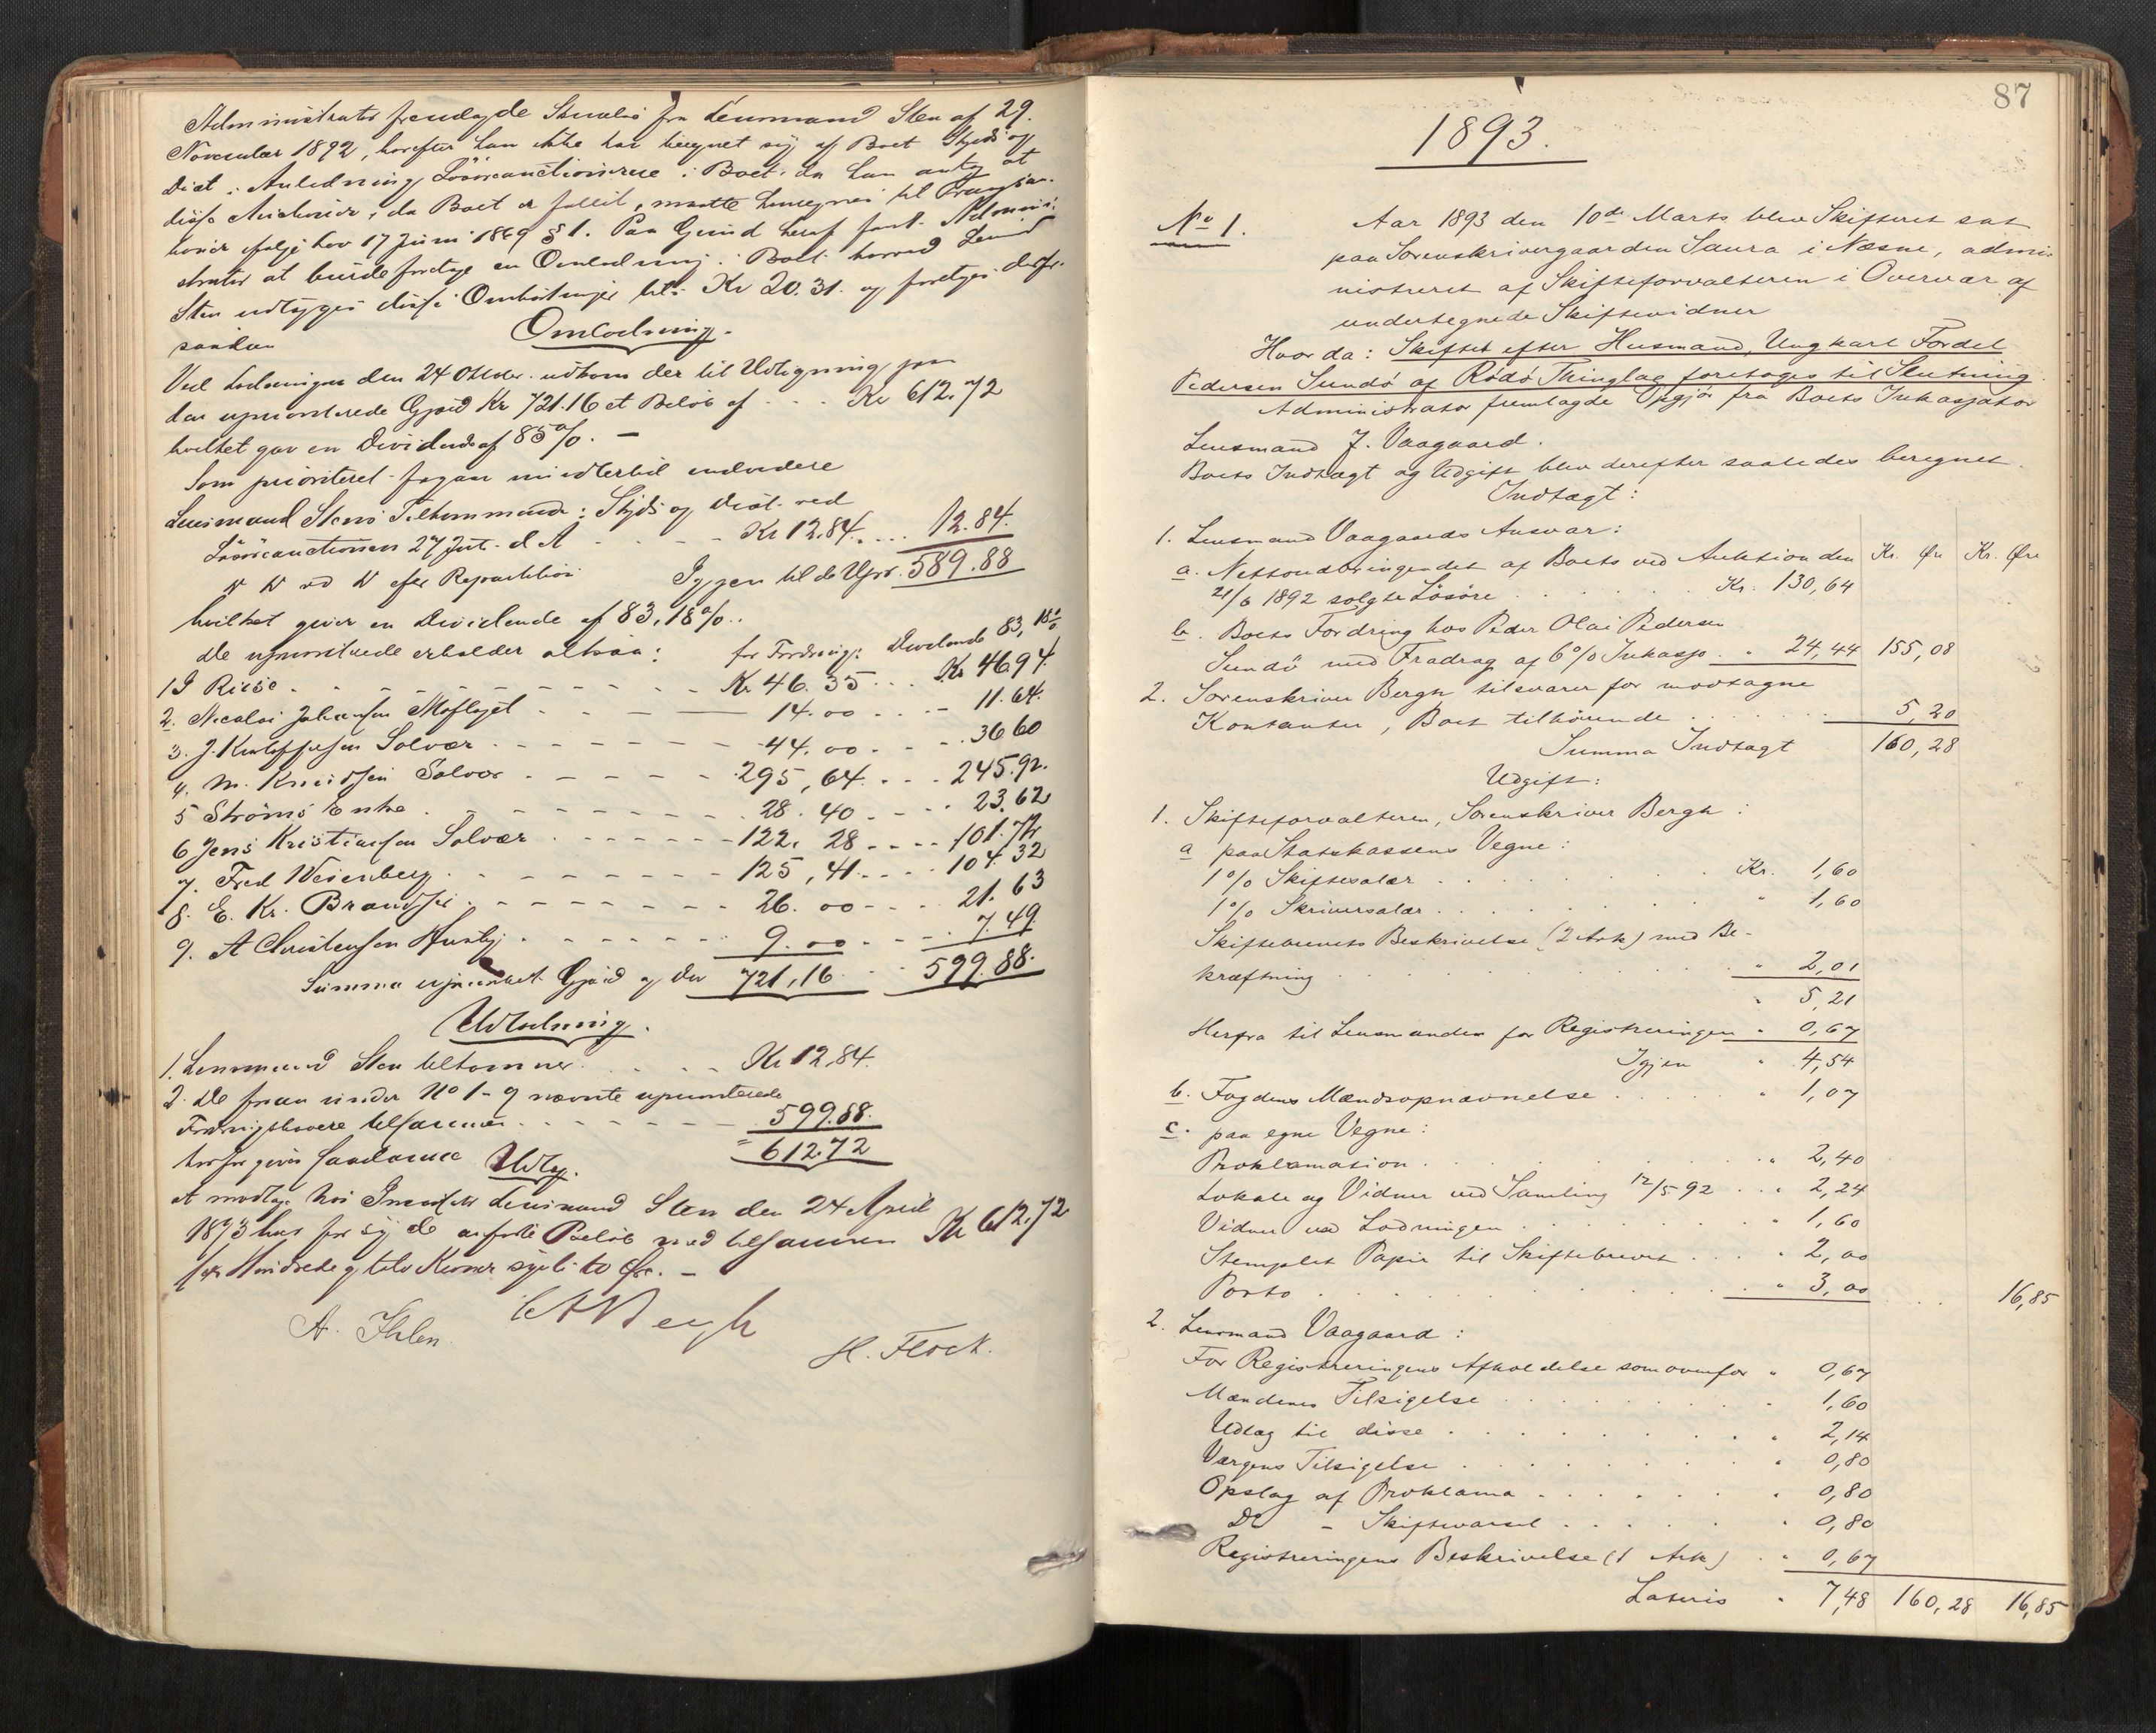 Administrator fremlagde Skrivelse fra Lensmand Sten af 29.
November 1892, hvorefter han ikke har beregnet sig af Boet Skyds og
Diæt i Anledning Lösöreauctionerne i Boet, da han antog at
disse , da Boet er fallit, maatte
ifølge Lov 17 Juni 1869 § 1. Paa Grund heraf fandt Admini-
strator at burde foretage en Omlodning i Boet hvorved Lensmd
Sten udlægges disse Omkostninger Kr 20.31. og foretoges derfor
saadan
Omlodning.
Ved Lodningen den 24 Oktober udkom der til Udligning paa
den uprioriterede Gjæld Kr 721.16 et Beløb af - - - Kr 612.72
hvilket gav en Dividende af 85%. -
Som prioriteret fragaar imidlertid endvidere
Lensmand Stens Tilkommende: Skyds og Diæt ved
Lösöreauctionen 27 . d A - - - Kr 12.84. . . . 12.84.
efter Repartition Igjen til de Upr. 589.88
hvilket giver en Dividende af 83,18%..
De uprioriterede erholder altsaa: for Fordring: Dividende 83,18%
1 J Riise . - - - - - - - Kr 46.35 . . . Kr 46.94.
2. Nicolai Johansen Moflaget - - - - 14.00 . . . - 11.64.
3. J. Kristoffersen Solvær - - - - - 44.00 . - - 36 60
4. M. Solvær . - - - - 295,64. . . . 245.92.
5 Ströms Enke . - - - - - - 28.40 . - . . 23.62
6 Jens Kristiansen Solvær . - - - - 122,28 - - - - 101.72
7. Fred Wesenberg . - - - - - - 125,41. - - . 104.32
8. E. Kr. . - - - - - - 26.00 - - - - 21.63
9. A Christensen Husby . - - - - - 9.00 - - - - 7.49.
Summa uprioriteret Gjæld og Div 721,16 . . 599.88.
Udlodning.
1. Lensmand Sten tilkommer . . - - . Kr 12.84.
2. De foran under No 1-9 nævnte uprioriterede
Fordringshavere tilsammen . - - - - - - 599.88.
" 612.72
hvorfor gives saadanne Udlæg.
at modtage hos Lensmand Sten den 24 April
1893 hver for sig de anførte Beløb med tilsammen Kr 612.72
sex Hundrede og tolv Kroner sytti to Øre. -
A. Ihlen.
H. Flock.
87
1893.
No 1. Aar 1893 den 10de Marts blev Skifteret sat
paa Sorenskrivergaarden Saura i Næsne, admi-
nistreret af Skifteforvalteren i Overvær af
undertegnede Skiftevidner
Hvor da: Skiftet efter Husmand, Ungkarl Fordel
Pedersen Sundö af Rödö Thinglag foretoges til Slutning.
Administrator fremlagde Opgjör fra Boets Inkassator
Lensmand J. Vaagaard.
Boets Indtægt og Udgift blev derefter saaledes beregnet.
Indtægt:
1. Lensmand Vaagaards Ansvar:
a. Nettoudbringendet af Boets ved Auktion den Kr. Øre Kr. Øre
21/6 1892 solgte Lösöre . . . . . Kr. 130,64
b. Boets Fordring hos Peder Olai Pedersen
Sundö med Fradrag af 6% Inkasso . " 24,44 155,08
2. Sorenskriver Bergh tilsvarer for modtagne
Kontanter, Boet tilhörende . . . . . . 5,20
Summa Indtægt 160,28
Udgift:
1. Skifteforvalteren, Sorenskriver Bergh:
a paa Statskassens Vegne:
1% Skiftesalær . . . . . . . . Kr. 1,60
1% Skriversalær . . . . . . . . " 1,60
Skiftebrevets Beskrivelse (2 Ark) med Be-
kræftning . . . . . . . . . . " 2,01
" 5,21
Herfra til Lensmanden for Registreringen " 0,67
Igjen " 4,54
b. Fogdens Mændsopnævnelse . . . . . " 1,07
c. paa egne Vegne:
Proklamation . . . . . . . . . " 2,40
Lokale og Vidner ved Samling 12/5 92 . . " 2,24
Vidner ved Lodningen . . . . . . . " 1,60
Stemplet Papir til Skiftebrevet . . . . " 2,00
Porto . . . . . . . . . . . " 3,00 . . . 16,85
2. Lensmand Vaagaard:
For Registreringens Afholdelse som ovenfor " 0,67
Mændenes Tilsigelse . . . . . . . " 1,60
Udlæg til disse . . . . . . . . " 2,14
Værgens Tilsigelse . . . . . . . " 0,80
Opslag af Proklama . . . . . . " 0,80
Do - Skiftevarsel . . . . . " 0,80
Registreringens Beskrivelse (1 Ark) . . " 0,67
Lateris " 7,48 160,28 16,85